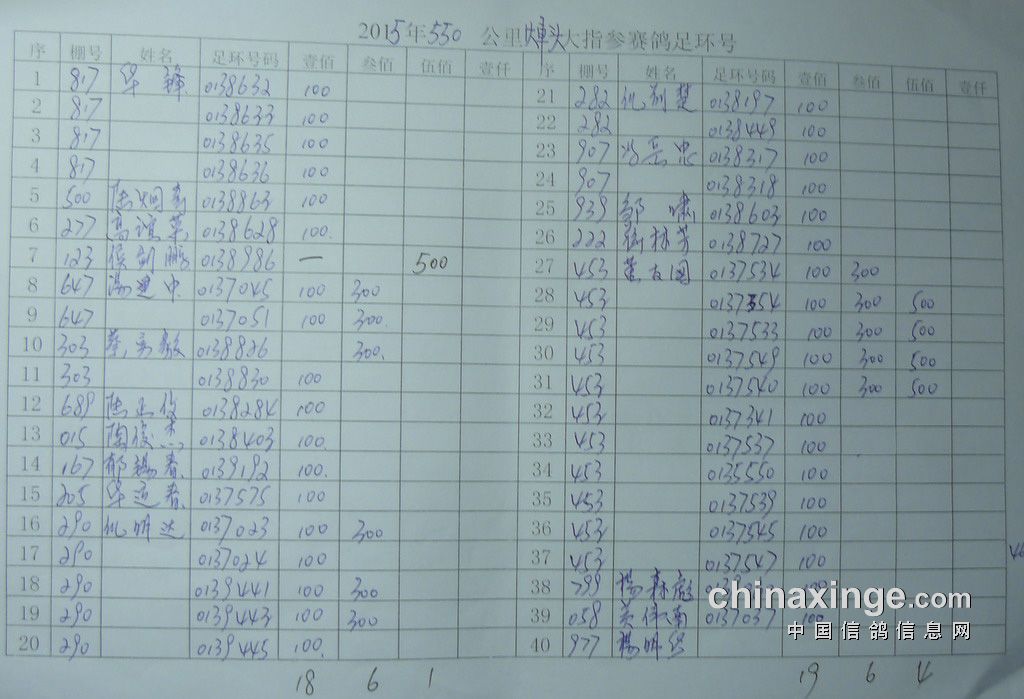 2015年550 公里焯头大指参赛鸽足环号
序 棚号 姓名 足环号码 壹佰 叁佰 伍佰 壹仟
1 817 华 锋 0138632 100
2 817 0138633 100
3 817 0138635 100
4 817 0138636 100
5 500 0138863 100
6 277 0138628 100.
7 123 侯剑鹏 0138986 — 500
8 647 冯建中 0137045 100 300
9 647 0137051 100 300.
10 303 0138826 300.
11 303 0138830 100
12 689 陆正俊 0138284 100
13 015 陶俊杰 0138403 100.
14 167 郁锡春 0139192 100.
15 205 华运春 0137575 100
16 290 仇明达 0137023 100 300
17 290 0137024 100
18 290 0139441 100 300
19 290 0139443 100 300
20 290 0139445 100.
18 6 1
序 棚号 姓名 足环号码 壹佰 叁佰 伍佰 壹仟
21 282 0138197 100
22 282 0138448 100
23 907 冯岳忠 0138317 100
24 907 0138318 100
25 939 邹 啸 0138603 100
26 222 0138727 100
27 453 0137534 100 300
28 453 0137554 100 300 500
29 453 0137533 100 300 500
30 453 0137549 100 300 500
31 453 0137540 100 300 500
32 453 0137341 100
33 453 0137537 100
34 453 0135550 100
35 453 0137539 100
36 453 0137545 100
37 453 0137547 100
38 799 杨森彪
39 058 黄伟南 0137037 100
40 977
19 6 4
chinaxinge.com
中国信鸽信息网